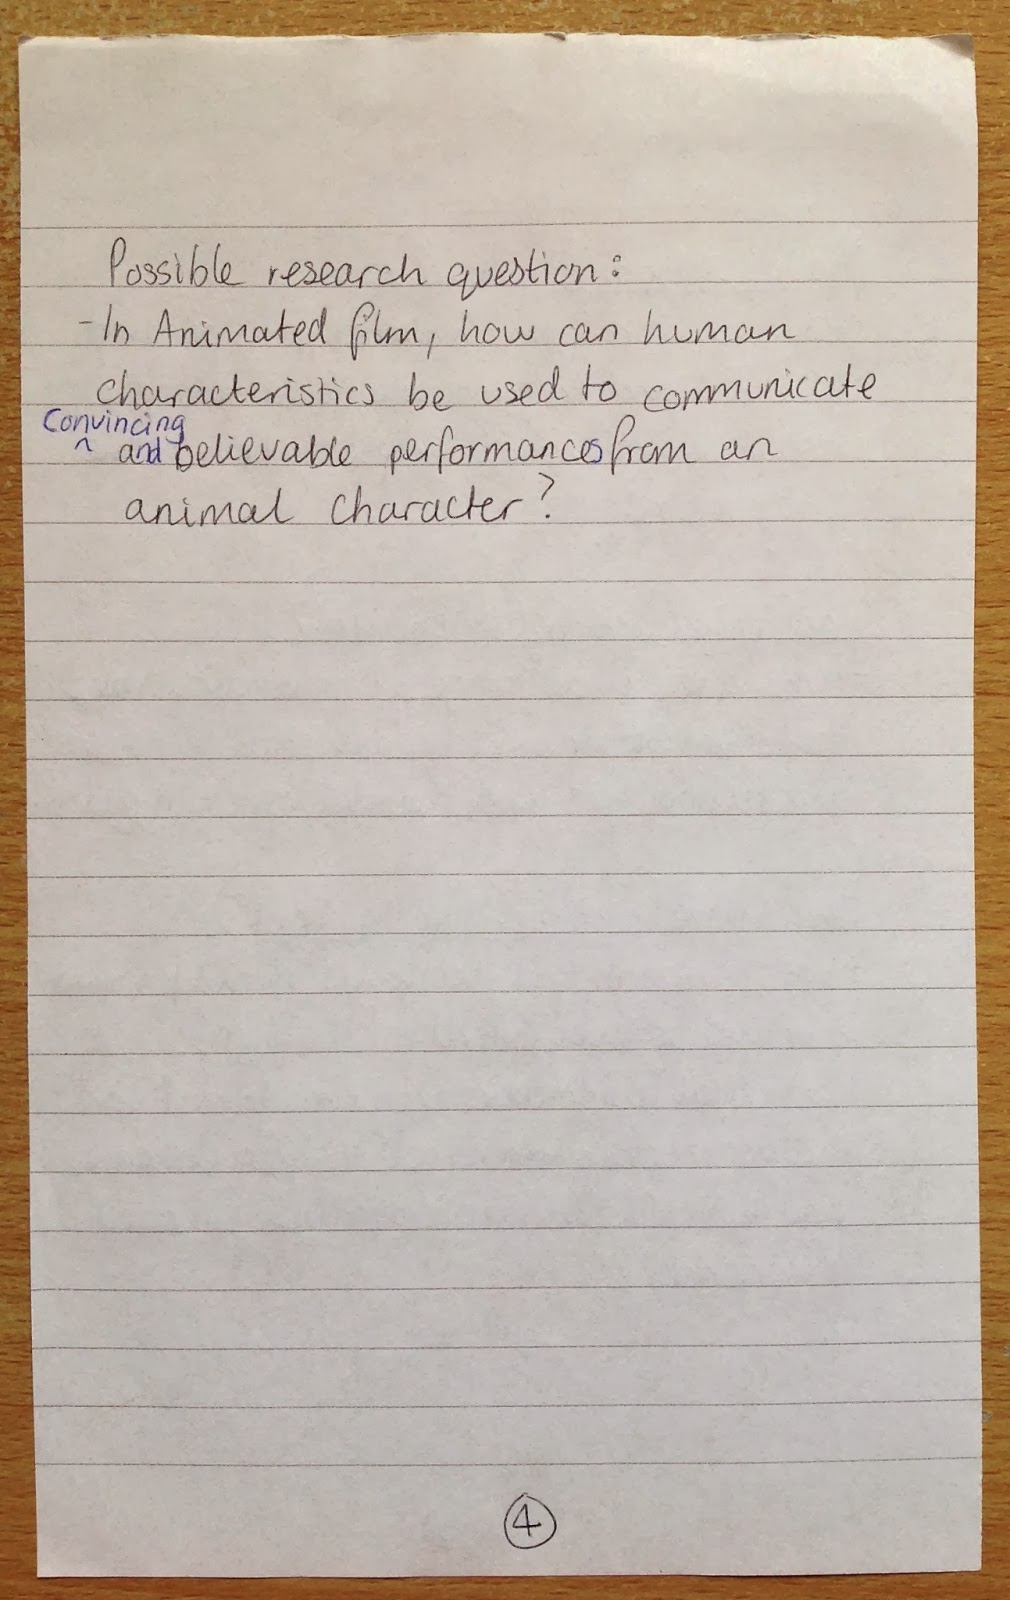 Possible research question:
-In Animated film, how can human
characteristics be used to communicate
Convincing
^ and believable performances from an
animal character?
4